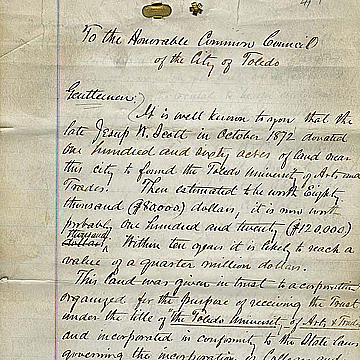 To the Honorable Common Council
of the City of Toledo
Gentlemen:)
It is well known to you that the
late Jesup W. Scott in October 1872 donated
one hundred and sixty acres of land near
this city to found the Toledo University of Arts and
Trades. Then estimated to be worth Eighty
thousand ($80.000) dollars, it is now worth
probably one hundred and twenty ($120.000)
thousand
dollars. Within ten years it is likely to reach a
value of a quarter million dollars.
This land was given in trust to a corporation
organized for the purpose of receiving the Trust
under the title of the Toledo University of Arts & Trades
and incorporated in conformity to the State law
governing the incorporation of